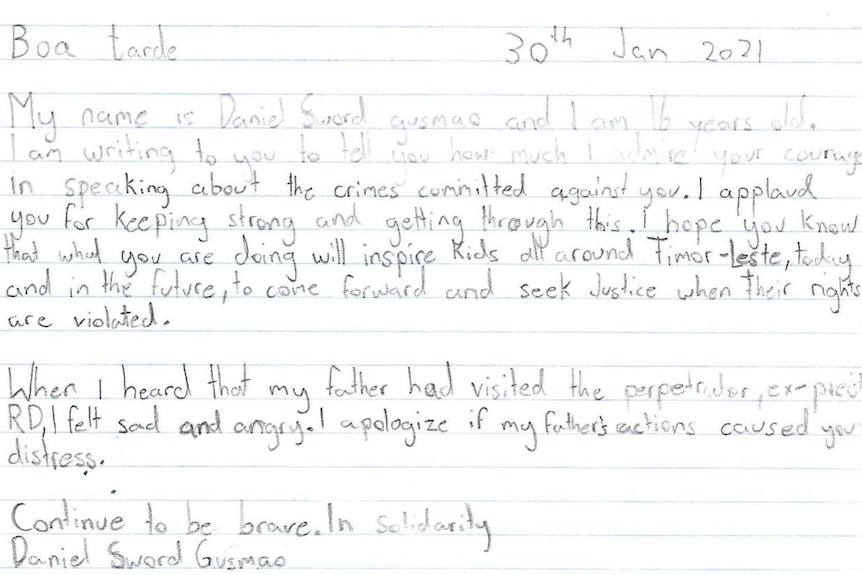 Boa tarde 30th Jan 2021
My name is Daniel Sword gusmao and I am 16 years old.
I am writing to you to tell you how much I admire your courage
in speaking about the crimes committed against you. I applaud
you for keeping strong and getting through this. I hope you know
that what you are doing will inspire kids all around Timor-Leste, today
and in the future, to come forward and seek Justice when their rights
are violated.
When I heard that my father had visited the perpetrator, ex-
RD, I felt sad and angry. I apologize if my father's actions caused you
distress.
Continue to be brave. In solidarity
Daniel Sword Gusmao